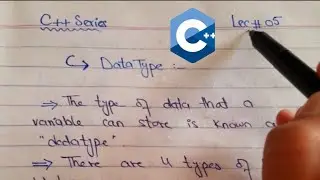 C++ Series Lec# 05
C++
↳ DataType :-
⇒ The type of data that a
variable can store is known a
"datatype".
⇒ There are 4 types of